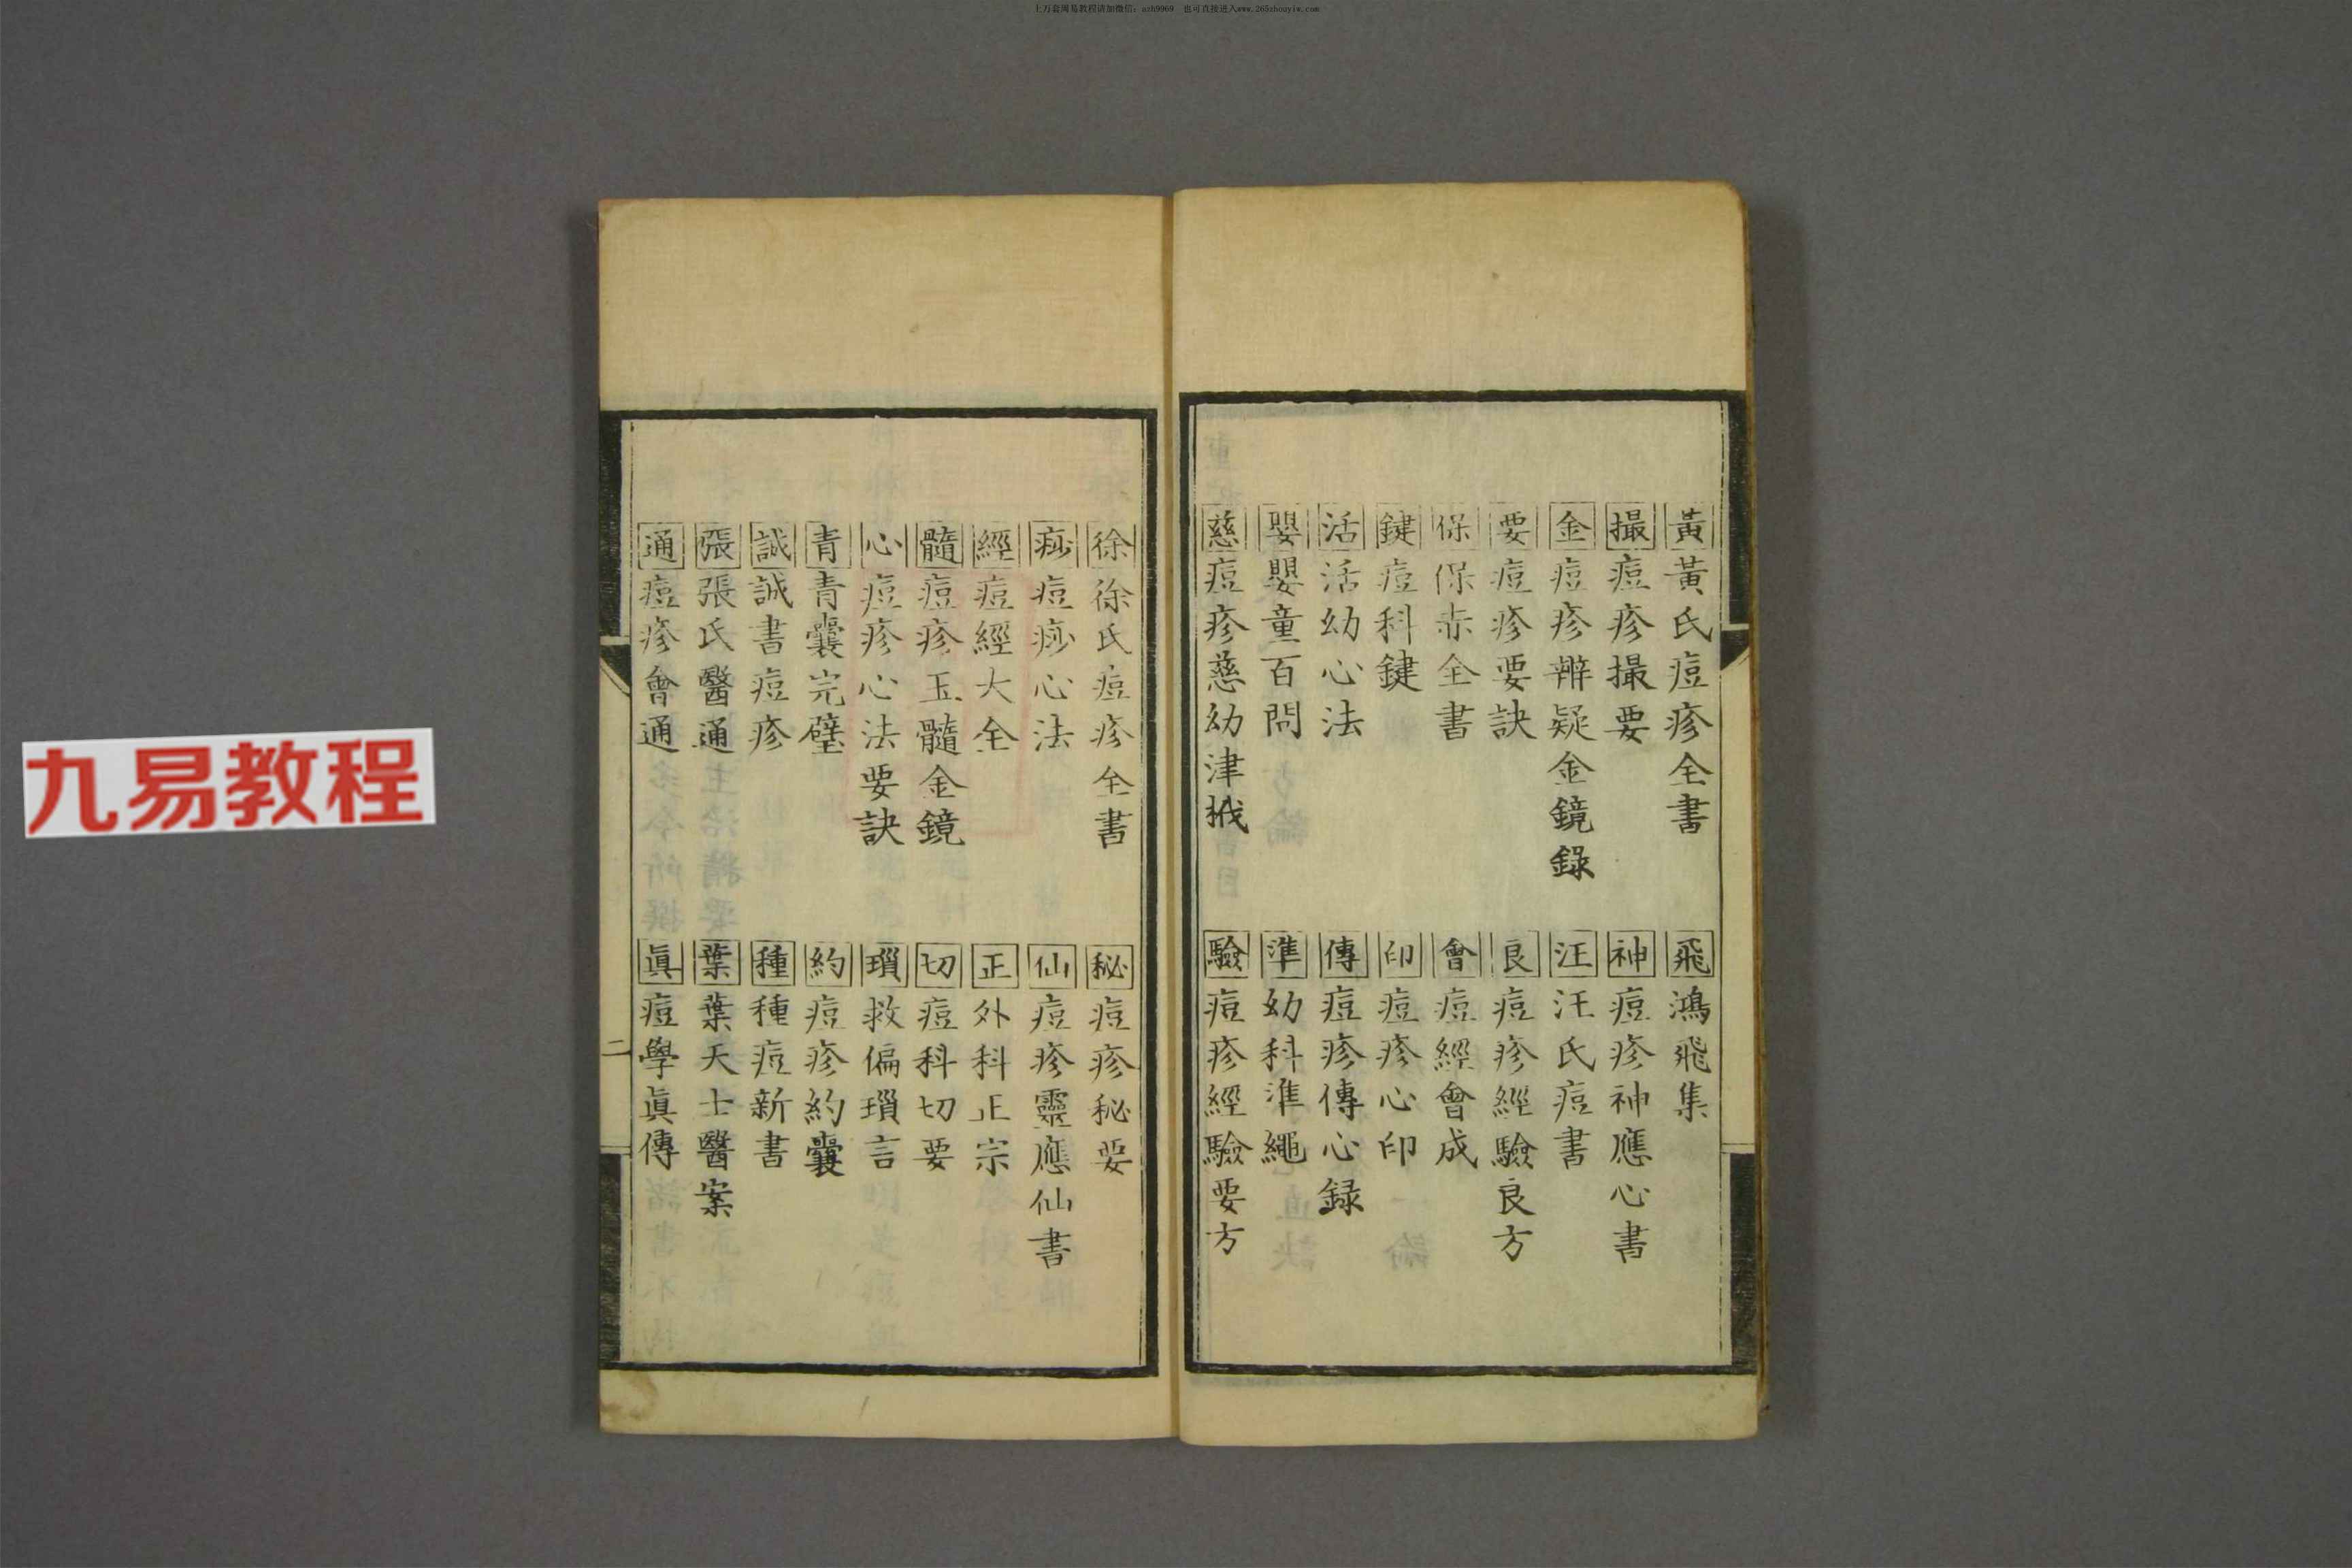 上万套周易教程请加微信：azh9969 也可直接进入www.265zhouyiw.com
黃 黃氏痘疹全書
飛 鴻飛集
撮 痘疹撮要
神 痘疹神應心書
金 痘疹辨疑金鏡錄
汪 汪氏痘書
要 痘疹要訣
良 痘疹經驗良方
保 保赤全書
會 痘經會成
鍵 痘科鍵
印 痘疹心印
活 活幼心法
傳 痘疹傳心録
嬰 嬰童百問
準 幼科準繩
慈 痘疹慈幼津栰
驗 痘疹經驗要方
徐 徐氏痘疹全書
秘 痘疹秘要
痧 痘痧心法
仙 痘疹靈應仙書
經 痘經大全
正 外科正宗
髓 痘疹玉髓金鏡
切 痘科切要
心 痘疹心法要訣
瑣 救偏瑣言
青 青囊完璧
約 痘疹約囊
誠 誠書痘疹
種 種痘新書
張 張氏醫通
葉 葉天士醫案
通 痘疹會通
眞 痘學眞傳
二
九易教程